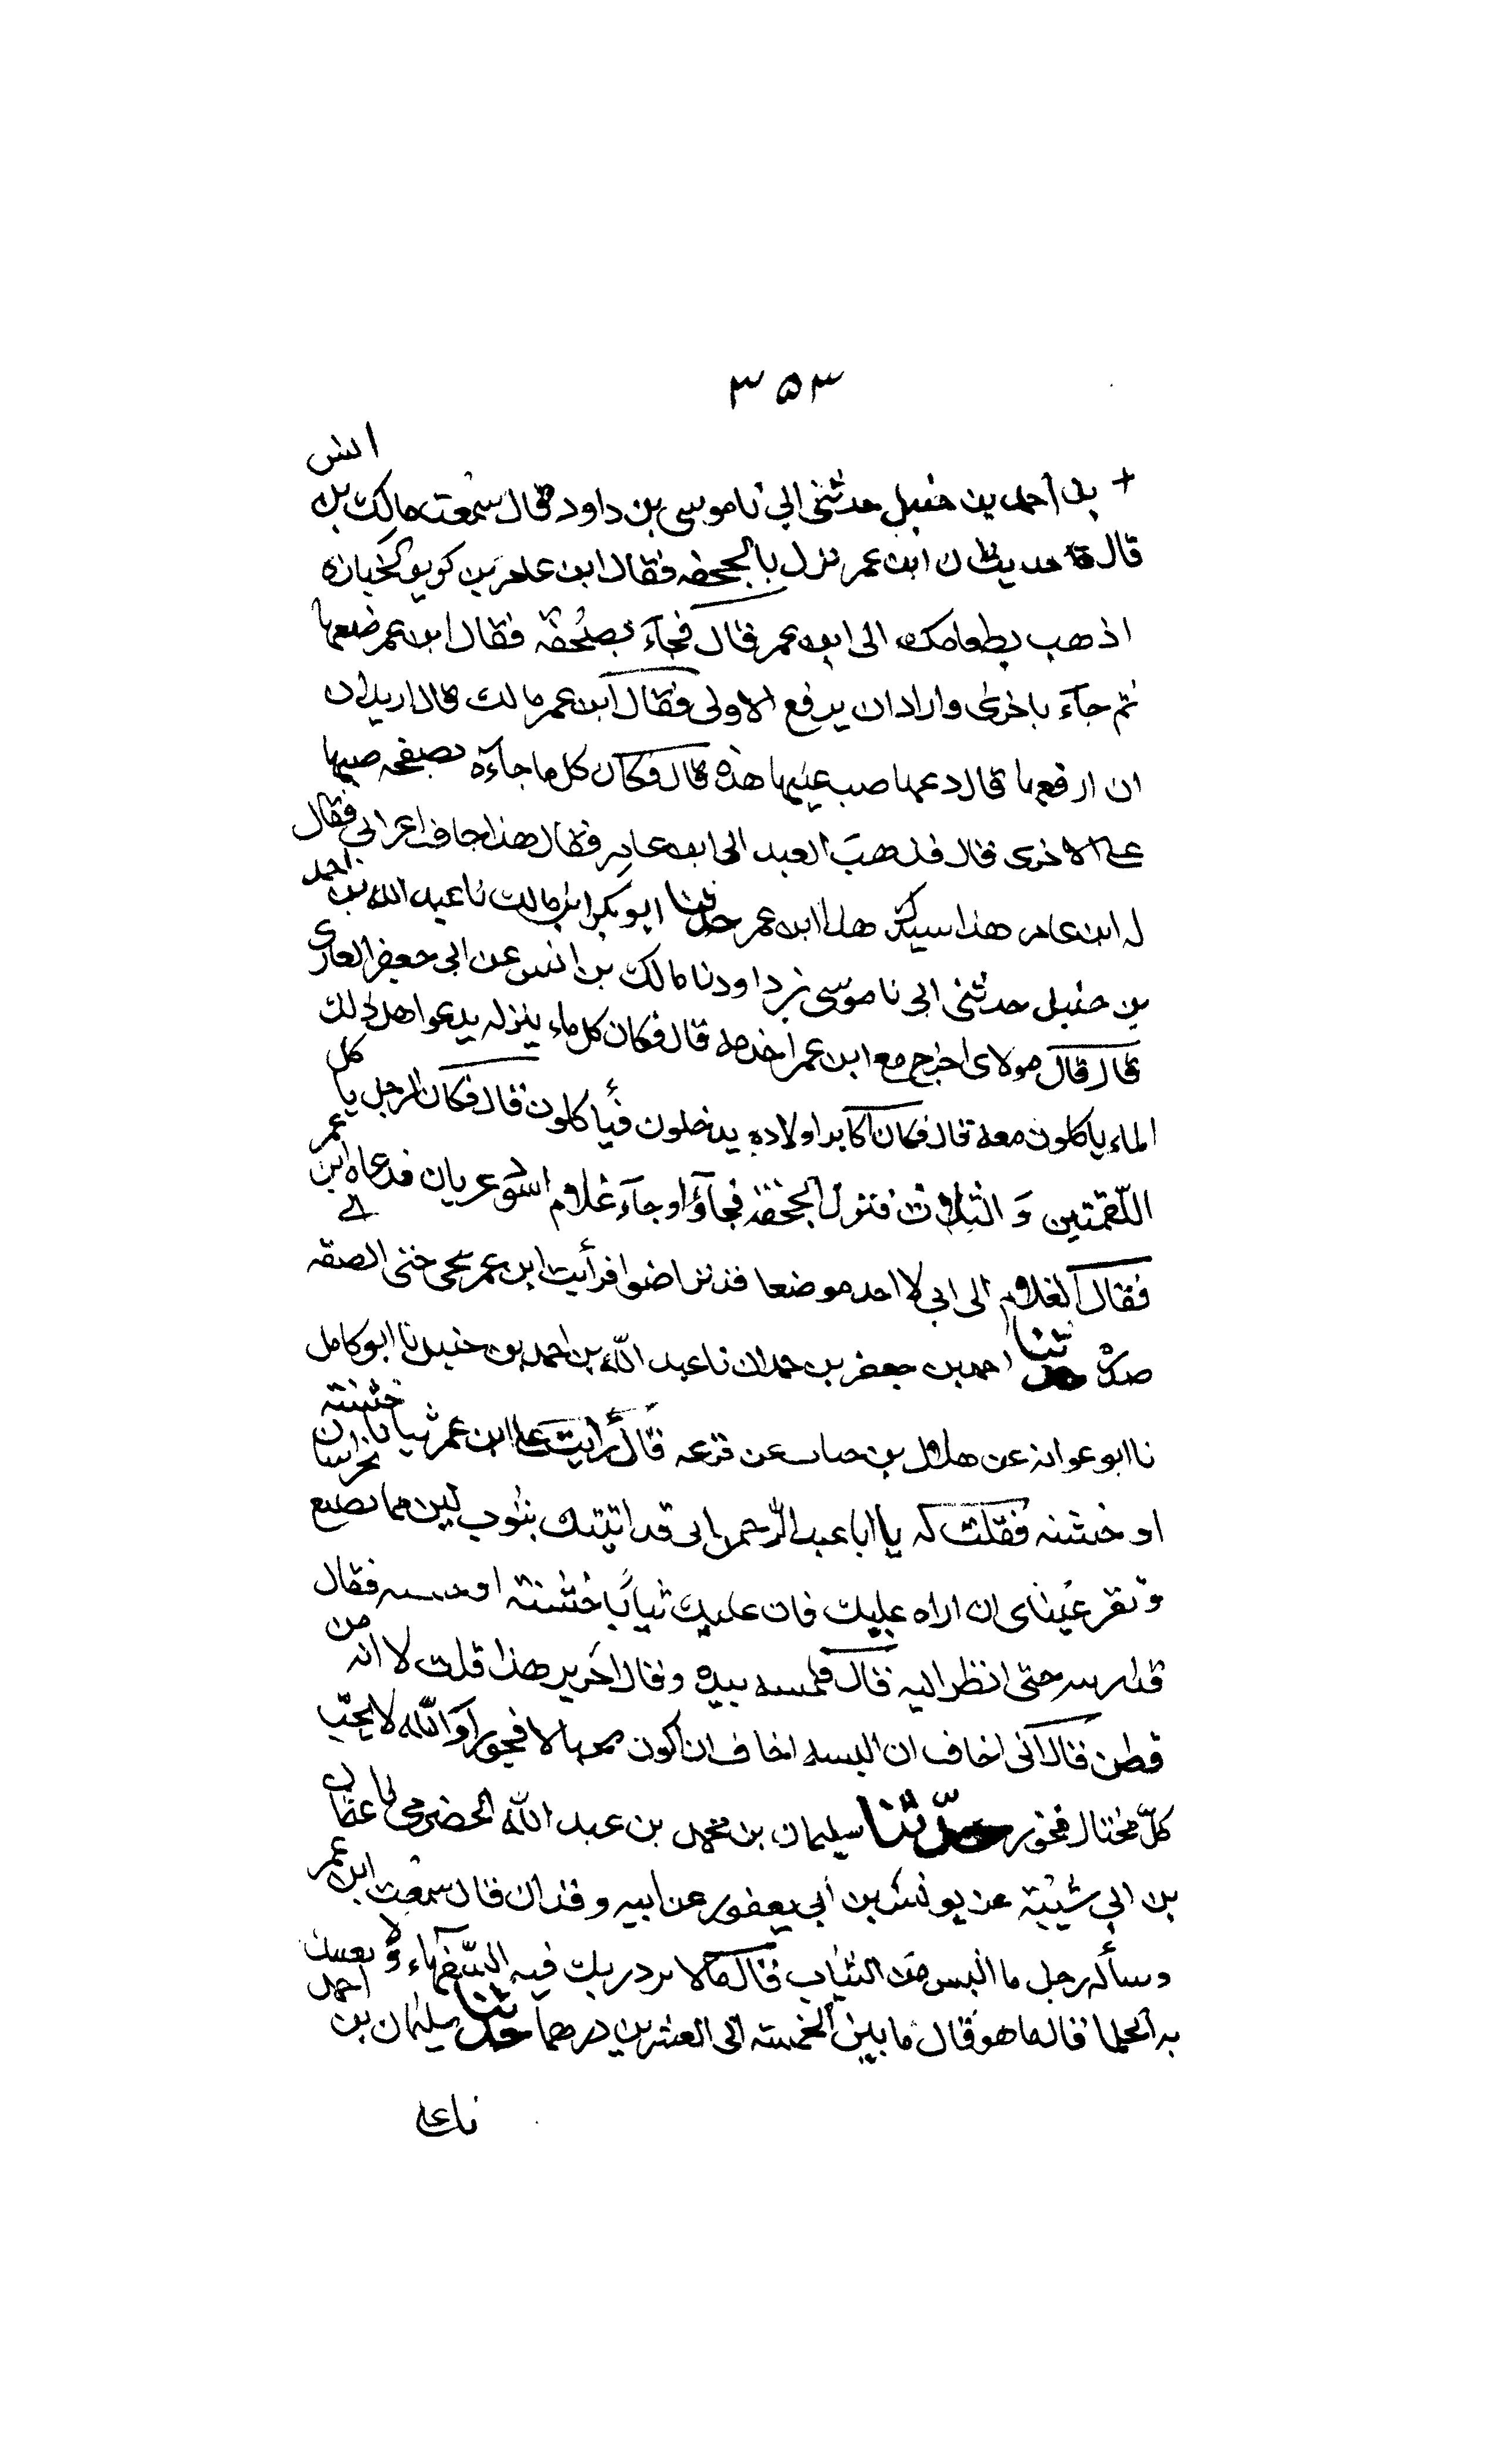 ٣٥٣
بن احمد بن حنبل حدثنى ابي نا موسى بن داود قال سمعت مالك بن انس
قال حديث ان ابن عمر نزل بالجحفه فقال ابن عامر بن كريز لخبازه
اذهب بطعامك الى ابن عمر قال فجآء بصحفة فقال ابن عمر ضعها
ثم جآء باخرى واراد ان يرفع الاولى فقال ابن عمر مالك قال اريد ان
ان ارفعها قال دعها صب عليها هذه قال فكان كل ما جاءه بصحفه صبها
على الاخرى قال فذهب العبد الى ابن عامر فقال هذا جاف اعرابي فقال
له ابن عامر هذا سيدك هذا ابن عمر حدثنا ابو بكر ابن مالك نا عبد الله بن احمد
بن حنبل حدثنى ابي نا موسى بن داود نا مالك بن انس عن ابي جعفر القاري
قال قال مولاى اخرج مع ابن عمر اخدمه قال فكان كل ماء ينزله يدعوا اهل ذلك
الماء ياكلون معه قال فكان اكابر اولاده يدخلون فيأكلون قال فكان الرجل ياكل
اللّقمتين وَ الثلاث فنزل الجحفة فجآؤا وجآء غلام اسود عريان فدعاه ابن عمر
فقال الغلام انى لا اجد موضعا قد تراضوا فرأيت ابن عمر تنحى حتى الصقه الى
صدره حدثنا احمد بن جعفر بن حمدان نا عبد الله بن احمد بن حنبل نا ابو كامل
نا ابو عوانه عن هلال بن خباب عن قزعه قال رأيت على ابن عمر ثيابا خشنة
او خشنه فقلت له يا ابا عبد الرّحمن انى قد اتيتك بثوب لين مما يصنع بخراسان
وتقر عيناى ان اراه عليك فان عليك ثيابًا خشنة او خشنه فقال
حتى انظر اليه قال فلمسه بيده وقال احرير هذا قلت لا انه من
قطن قال انى اخاف ان البسه اخاف ان اكون مختالا فخورا وَالله لا يحبّ
كلّ مختال فخور حدّثنا سليمان بن محمد بن عبد الله الحضرمي نا عثمان
بن ابي شيبة عن يونس بن ابي يعفور عن ابيه وقدان قال سمعت ابن عمر
وسأله رجل ما البس من الثياب قال ما لا يزدريك فيه السّفهاء ولا يعيبك
به الحلما قال ما هو قال ما بين الخمسة الى العشرين درهما حدثنا سليمان بن احمد
نا على